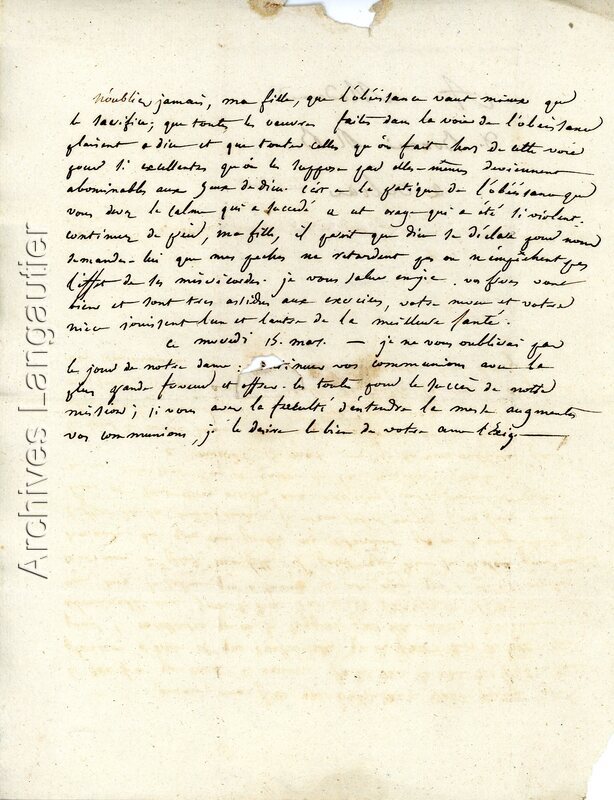 n'oubliez jamais, ma fille, que l'obéissance vaut mieux que
le sacrifice; que toutes les oeuvres faites dans la voie de l'obéissance
plaisent a dieu et que toutes celles qu'on fait hors de cette voie
pour si excellentes qu'on les suppose par elles-mêmes deviennent
abominables aux yeux de dieu. c'est a la pratique de l'obéissance que
vous devez le calme qui a succédé a cet orage qui a été si violent.
continuez de prier, ma fille, il paroit que dieu se déclare pour nous
demandez-lui que mes péches ne retardent pas ou n'empêchent pas
l'effet de ses miséricordes. je vous salue
bien et sont tres assidus aux exercices, votre mere et votre
niece jouissent l'une et l'autre de la meilleure santé.
ce mercredi 15. mars. — je ne vous oublierai pas
le jour de notre dame: continuez vos communions avec la
plus grande ferveur et offrez-les toutes pour le succès de notre
mission; si vous avez la faculté d'entendre la messe augmentez
vos communions, je le desire le bien de votre ame l'exige
Archives Langautier